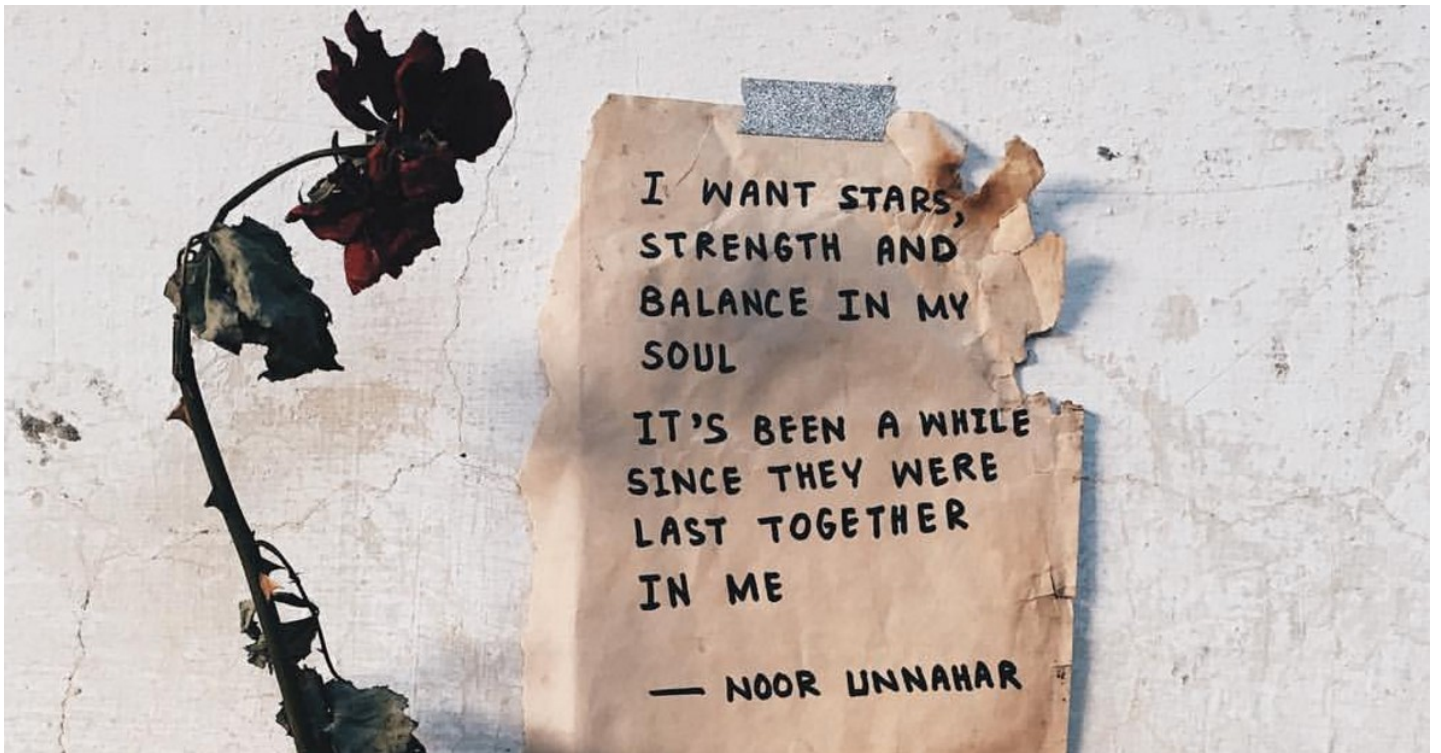 I WANT STARS,
STRENGTH AND
BALANCE IN MY
SOUL
IT'S BEEN A WHILE
SINCE THEY WERE
LAST TOGETHER
IN ME
— NOOR UNNAHAR